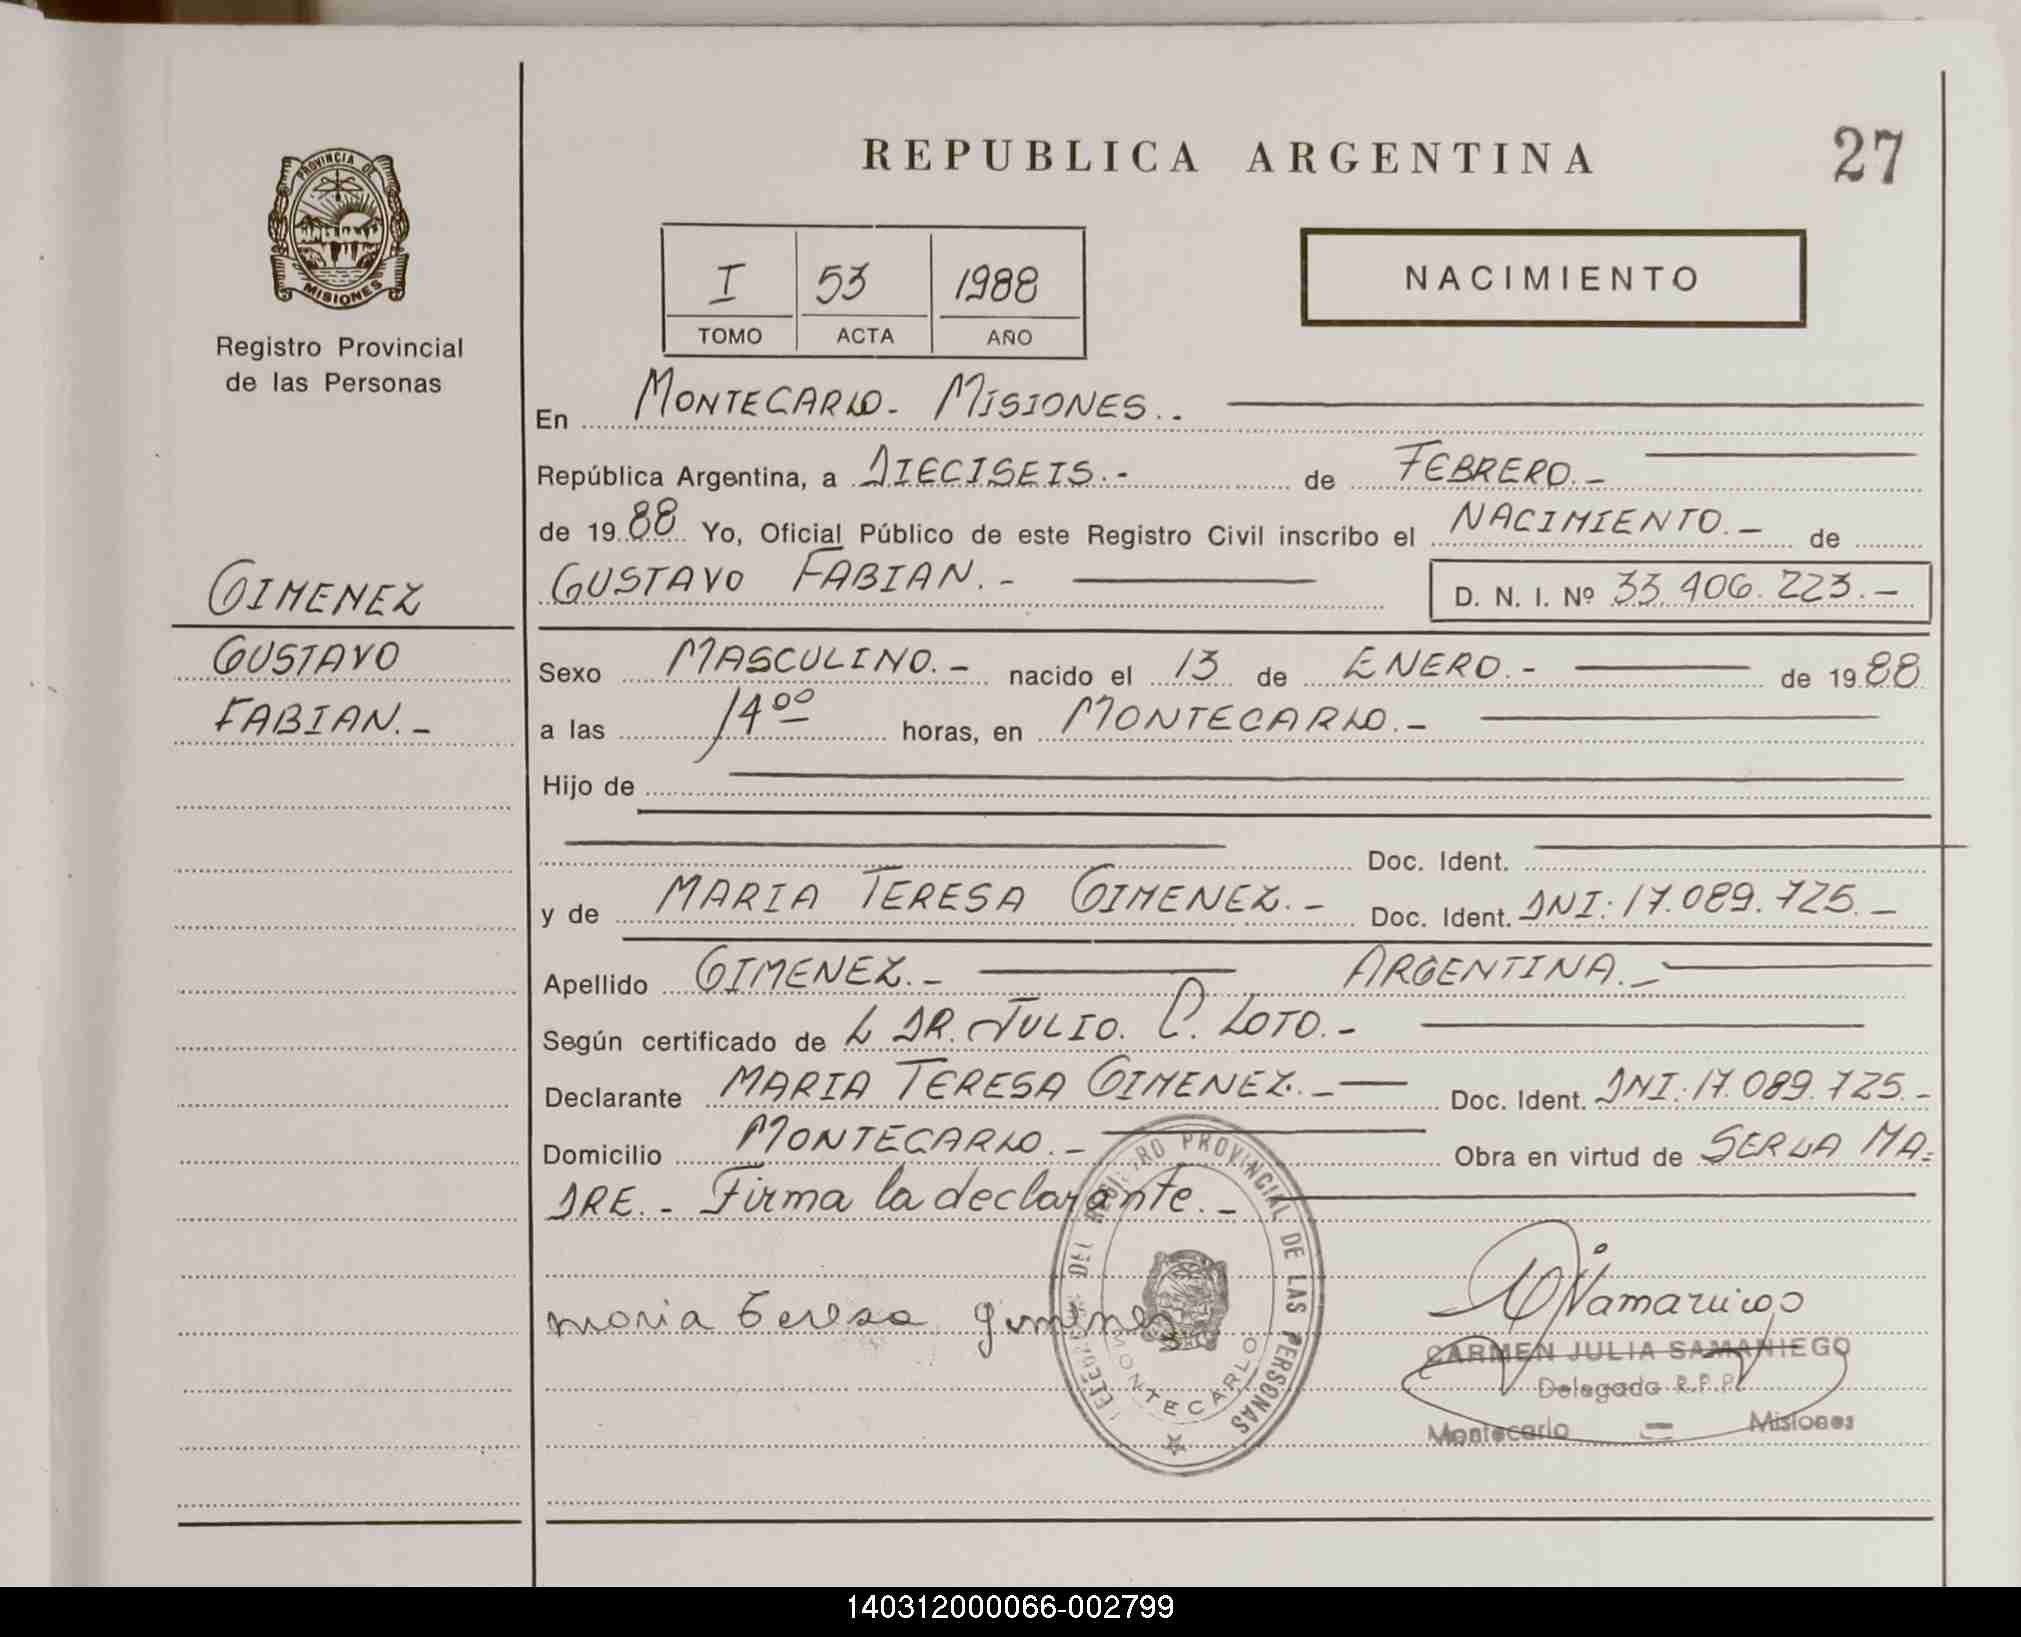 REPUBLICA ARGENTINA
27
PROVINCIA DE
MISIONES
Registro Provincial
de las Personas
I 53 1988
TOMO ACTA AÑO
NACIMIENTO
En MONTECARLO- MISIONES.-
República Argentina, a DIECISEIS.- de FEBRERO.-
de 1988 Yo, Oficial Público de este Registro Civil inscribo el NACIMIENTO.- de
GUSTAVO FABIAN.- D. N. I. Nº 33.406.223.-
GIMENEZ
GUSTAVO
FABIAN.-
Sexo MASCULINO.- nacido el 13 de ENERO.- de 1988
a las 14⁰⁰ horas, en MONTECARLO.-
Hijo de
Doc. Ident.
y de MARIA TERESA GIMENEZ.- Doc. Ident. DNI: 17.089.725.-
Apellido GIMENEZ.- ARGENTINA.-
Según certificado de L DR. JULIO. C. LOTO.-
Declarante MARIA TERESA GIMENEZ.- Doc. Ident. DNI: 17.089.725.-
Domicilio MONTECARLO.- Obra en virtud de SER LA MA-
DRE.- Firma la declarante.-
maria teresa gimenez
DEL REGISTRO PROVINCIAL DE LAS PERSONAS
MONTECARLO
CARMEN JULIA SAMANIEGO
Delegada R.P.P.
Montecarlo - Misiones
140312000066-002799